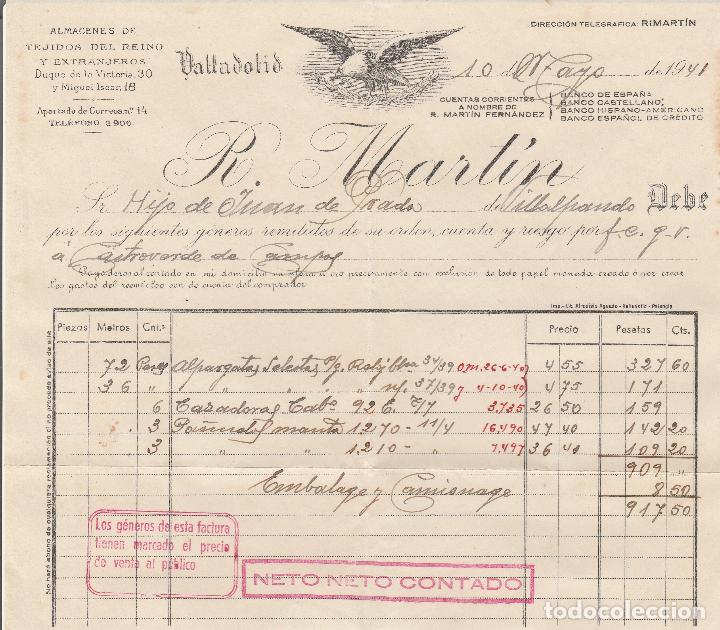 ALMACENES DE
TEJIDOS DEL REINO
Y EXTRANJEROS
Duque de la Victoria, 30
y Miguel Iscar, 18
Apartado de Correos n.º 14
TELÉFONO 2906
Valladolid
DIRECCIÓN TELEGRÁFICA: RIMARTÍN
10 de Mayo de 1941
CUENTAS CORRIENTES
A NOMBRE DE
R. MARTÍN FERNÁNDEZ
BANCO DE ESPAÑA
BANCO CASTELLANO
BANCO HISPANO-AMERICANO
BANCO ESPAÑOL DE CRÉDITO
R. Martín
Sr. Hijo de Juan de Prada de Villalpando Debe
por los siguientes géneros remitidos de su orden, cuenta y riesgo por f.c. g.v.
á Castroverde de Campos
Pagaderos al contado en mi domicilio en plata ú oro precisamente con exclusión de todo papel moneda creado ó por crear
Los gastos del reembolso son de cuenta del comprador
Imp.-Lit. Afrodisio Aguado.-Valladolid - Palencia
Piezas Metros Cnt.º Precio Pesetas Cts.
72 Pares Alpargatas Selectas 34/39 0m.26-6-40 4 55 327 60
36 " " " 37/39 4-10-40 4 75 171
6 Cazadoras Cabº 926 3,735 26 50 159
3 Pañuelos manta 1270 - 11/4 16,490 47 40 142 20
3 " " 1210 - " 7,497 36 40 109 20
909 "
Embalage y Camionage 8 50
917 50
Los géneros de esta factura
tienen marcado el precio
de venta al público
NETO NETO CONTADO
todocoleccion